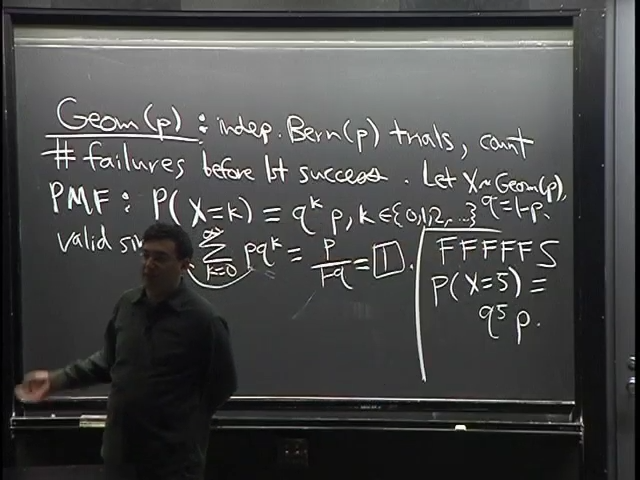 Geom(p): indep. Bern(p) trials, count
# failures before 1st success. Let X~Geom(p),
PMF: P(X=k) = q^k p, k∈{0,1,2,...} q=1-p.
valid sin ∞∑k=0 pq^k = p/1-q = 1.
FFFFFS
P(X=5) =
q^5 p.